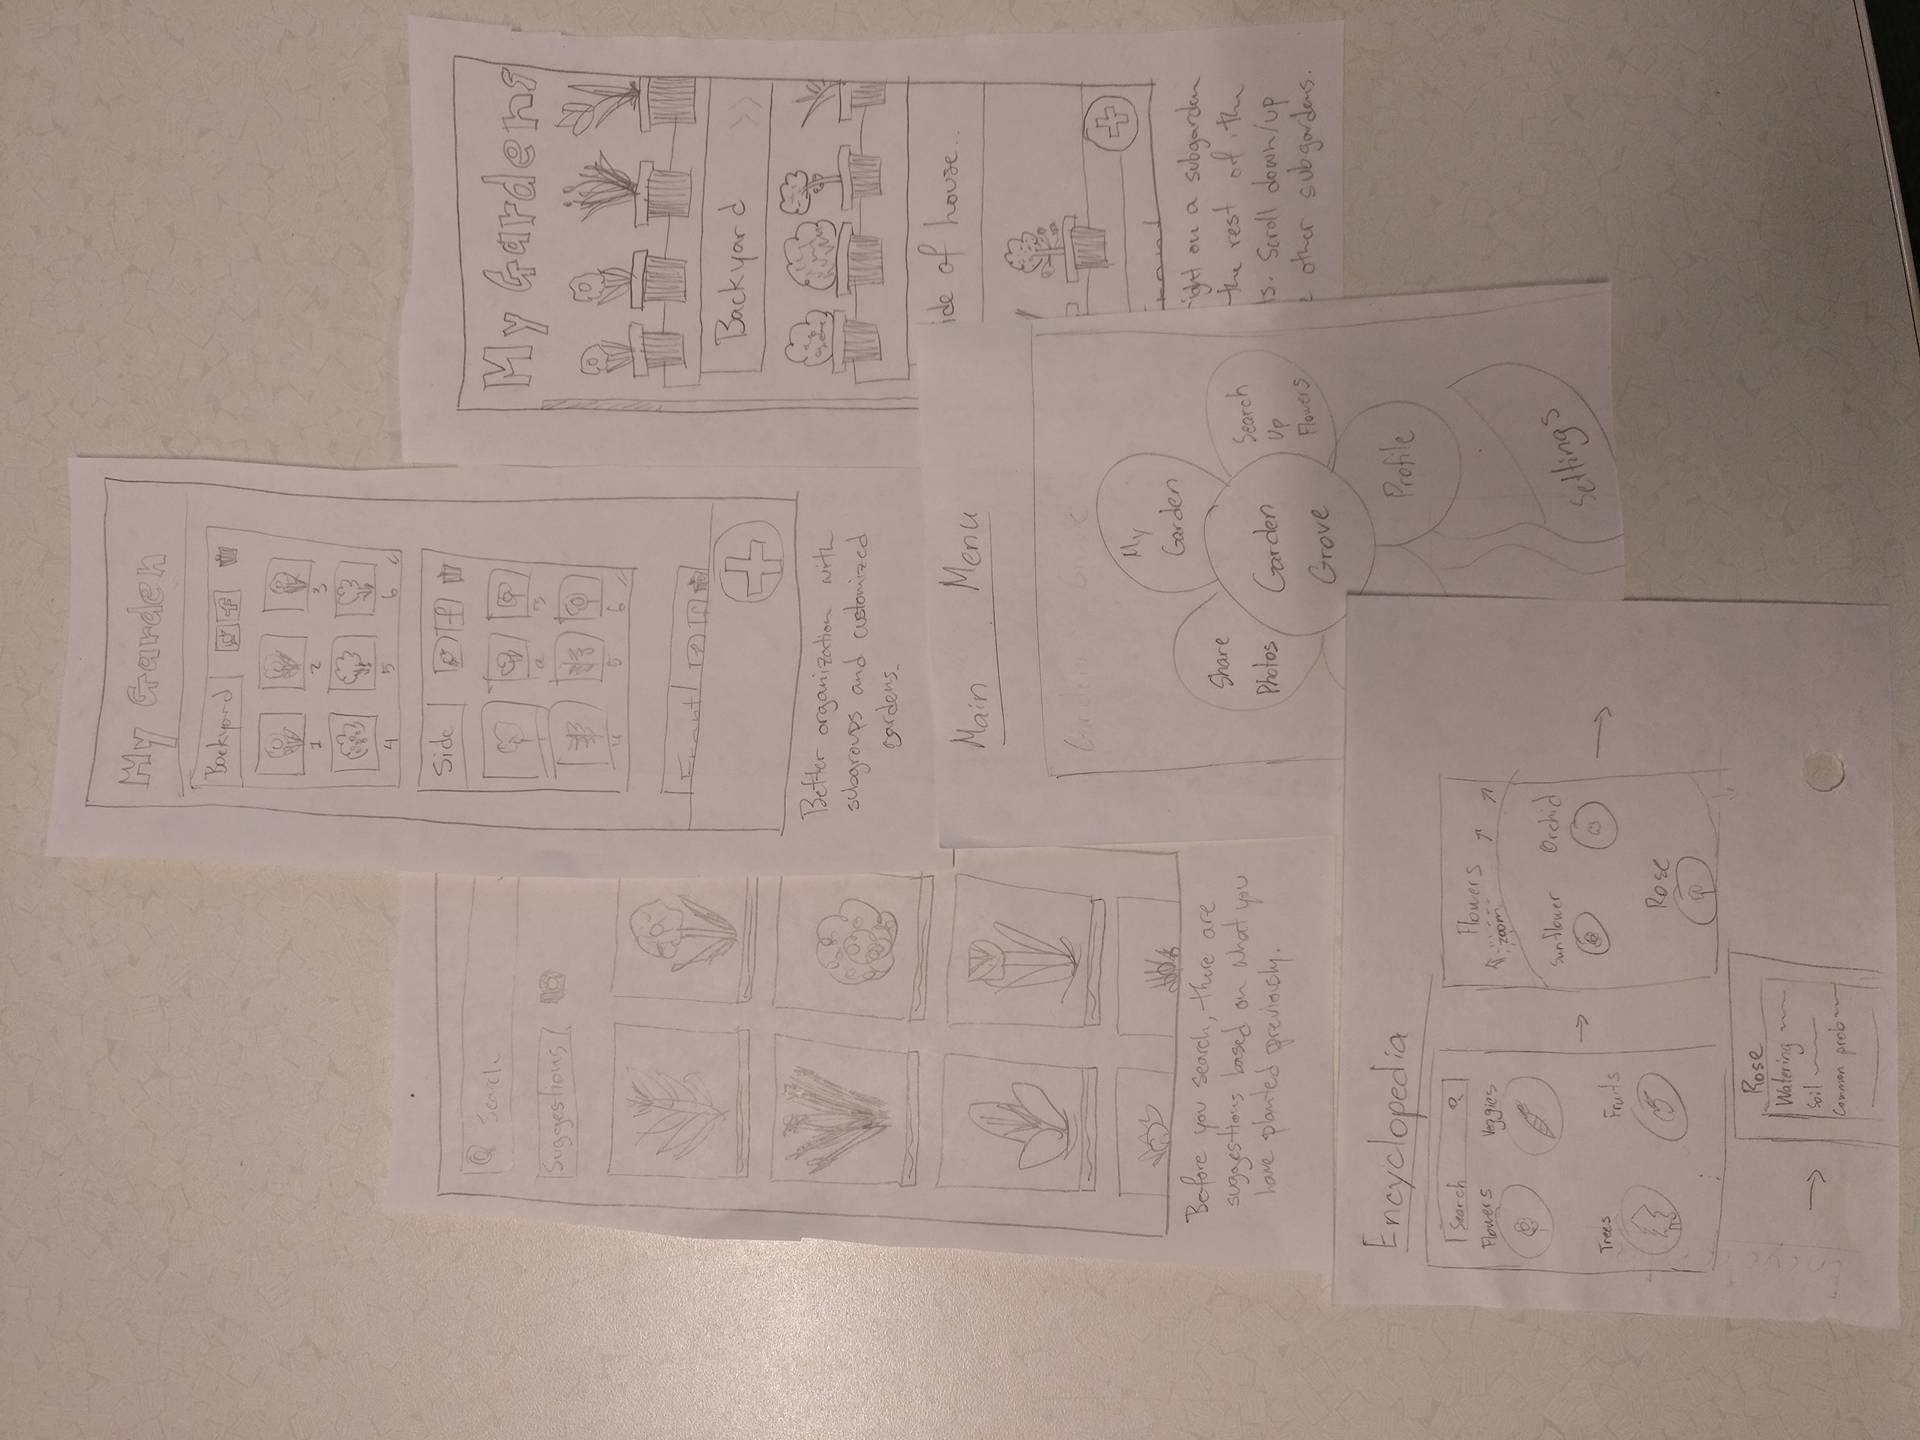 My Garden
Backyard
f
1 2 3
4 5 6
Side
f
2 3
4 5 6
Front
f
Better organization with
subgroups and customized
gardens.
Search
Suggestions
Before you search, there are
suggestions based on what you
have planted previously.
My Gardens
Backyard >>
ide of house...
Front
right on a subgarden
the rest of the
s. Scroll down/up
other subgardens.
Main Menu
Garden Grove
My
Garden
Share
Photos
Search
Up
Flowers
Garden
Grove
Profile
Settings
Encyclopedia
Search
Flowers Veggies
Trees Fruits
Flowers
zoom
Sunflower Orchid
Rose
Rose
Watering
Soil
Common prob